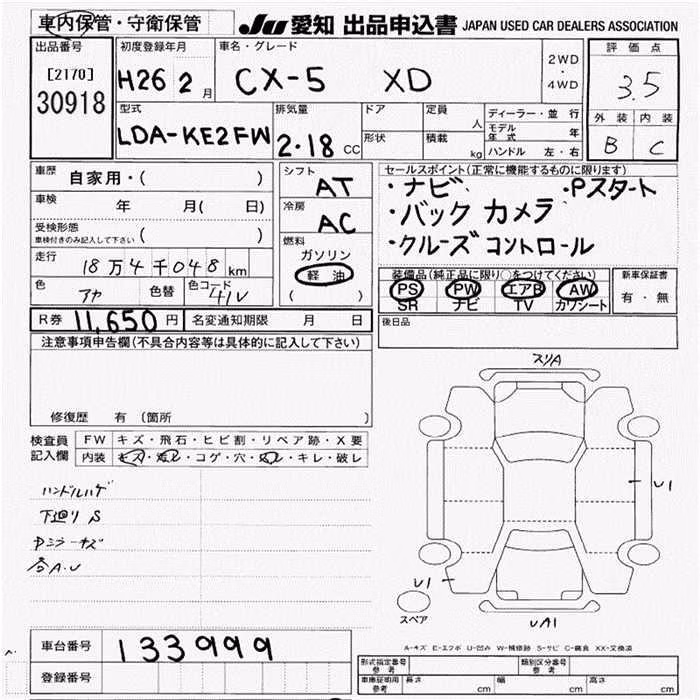 車内保管・守衛保管
JU 愛知 出品申込書 JAPAN USED CAR DEALERS ASSOCIATION
出品番号 [2170] 30918
初度登録年月 H26 2月
車名・グレード CX-5 XD
2WD・4WD
評価点 3.5
外装 B 内装 C
型式 LDA-KE2FW
排気量 2.18 CC
ドア 形状
定員 人 積載 kg
ディーラー・並行
モデル年式 年
ハンドル 左・右
車歴 自家用・( )
車検 年 月( 日)
受検形態 車検付きのみ記入して下さい ( )
走行 18万4千048km
色 アカ 色替 色コード 41V
シフト AT
冷房 AC
燃料 ガソリン 軽油 ( )
セールスポイント(正常に機能するものに限ります)
・ナビ ・Pスタート
・バックカメラ
・クルーズコントロール
装備品(純正品に限り○をつけてください)
PS PW エアB AW
SR ナビ TV カワシート
新車保証書 有・無
R券 11,650円 名変通知期限 月 日
後日品
注意事項申告欄(不具合内容等は具体的に記入して下さい)
修復歴 有 (箇所 )
検査員記入欄
FW キズ・飛石・ヒビ割・リペア跡・X要
内装 キズ・汚レ・コゲ・穴・凹レ・キレ・破レ
ハンドルハゲ
下廻りS
Dミラーキズ
各A.U
スリA
U1
U1
UA1
スペア
A-キズ E-エクボ U-凹み W-補修跡 S-サビ C-腐食 XX-交換済
車台番号 133999
登録番号
形式指定番号 参考 類別区分番号 参考
車庫証明用 参考 長さ cm 幅 cm 高さ cm